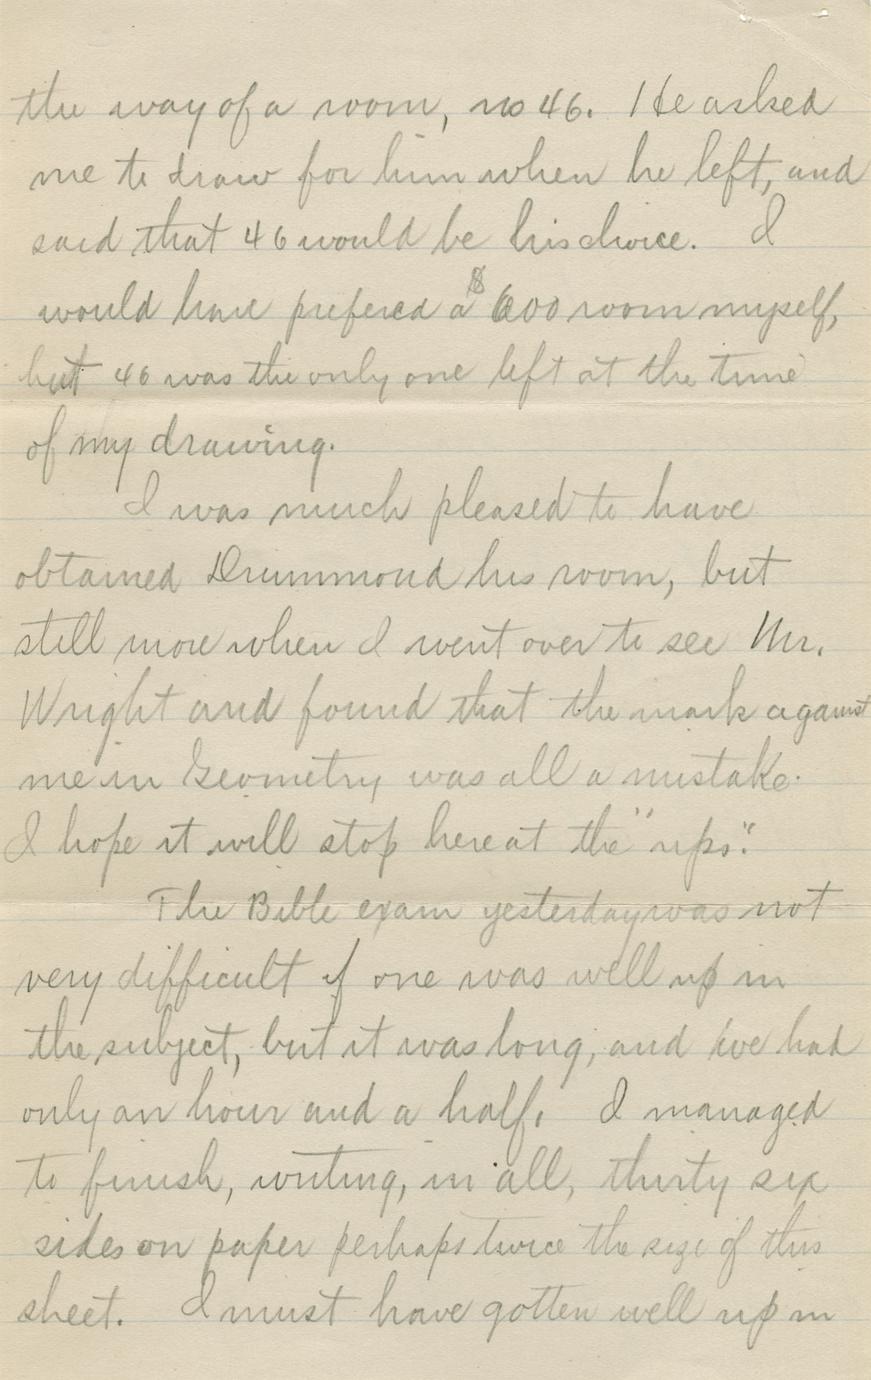 the way of a room, no 46. He asked
me to draw for him when he left, and
said that 46 would be his choice. I
would have prefered a $600 room myself,
but 46 was the only one left at the time
of my drawing.
I was much pleased to have
obtained Drummond his room, but
still more when I went over to see Mr.
Wright and found that the mark against
me in Geometry was all a mistake.
I hope it will stop here at the "ups".
The Bible exam yesterday was not
very difficult if one was well up in
the subject, but it was long, and we had
only an hour and a half. I managed
to finish, writing, in all, thirty six
sides on paper perhaps twice the size of this
sheet. I must have gotten well up in